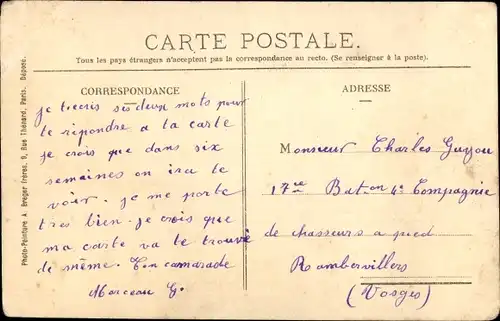 CARTE POSTALE.
Tous les pays étrangers n'acceptent pas la correspondance au recto. (Se renseigner à la poste).
CORRESPONDANCE
je t'ecris ses deux mots pour
te répondre a ta carte
je crois que dans six
semaines on ira te
voir. je me porte
tres bien. je crois que
ma carte va te trouvé
de même. Ton camarade
Marceau G.
ADRESSE
Monsieur Charles Guyou
17eme Bat.on 4e Compagnie
de chasseurs a pied
Rambervillers
(Vosges)
Photo-Peinture A. Breger Frères, 9, Rue Thénard, Paris. Déposé.